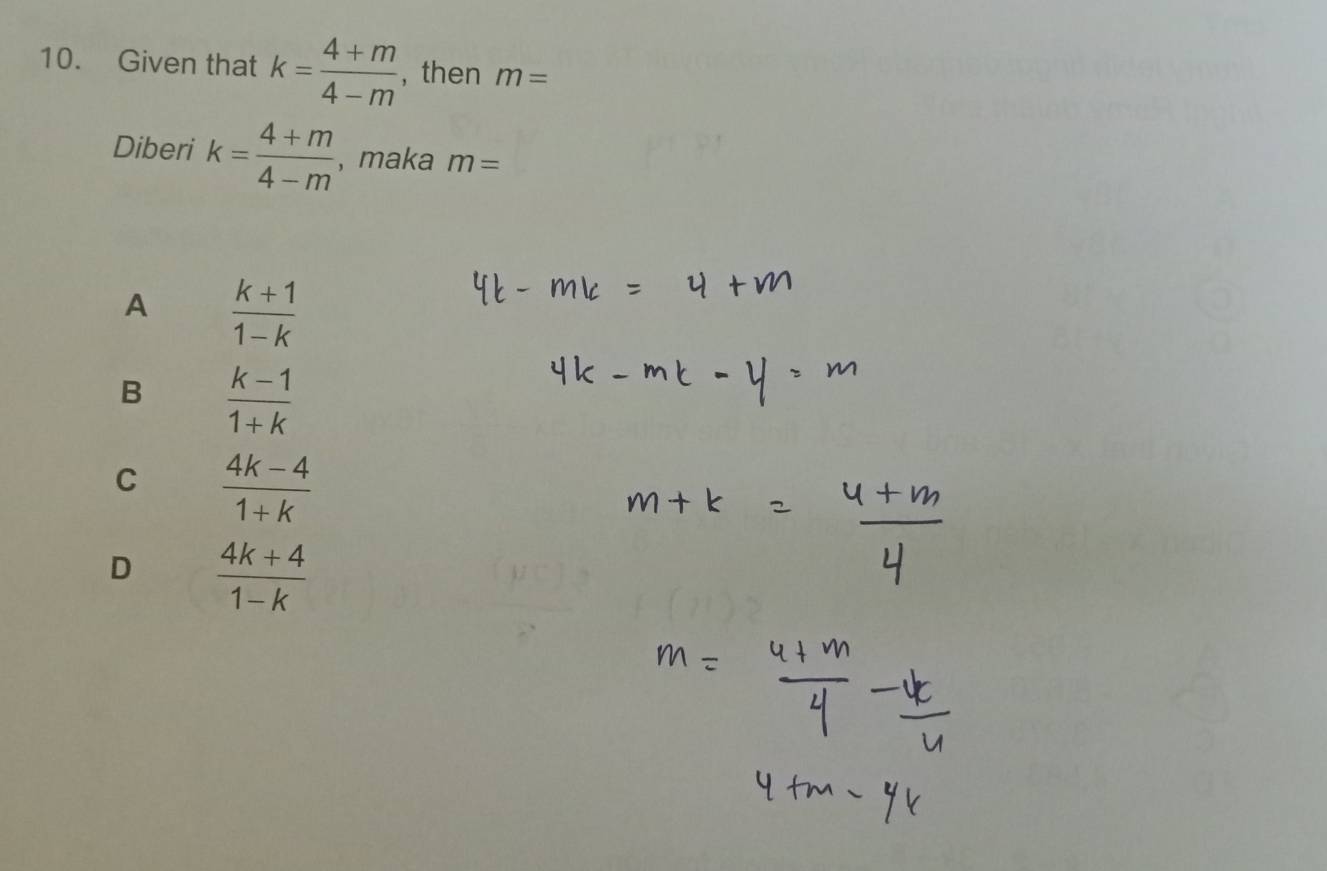 10. Given that k = (4 + m)/(4 − m), then m =
Diberi k = (4 + m)/(4 − m), maka m =
A (k + 1)/(1 − k)
B (k − 1)/(1 + k)
C (4k − 4)/(1 + k)
D (4k + 4)/(1 − k)
4k - mk = 4 + m
4k - mk - 4 = m
m + k = (4 + m)/4
m = (4 + m)/4 - 4k/4
4 + m - 4k